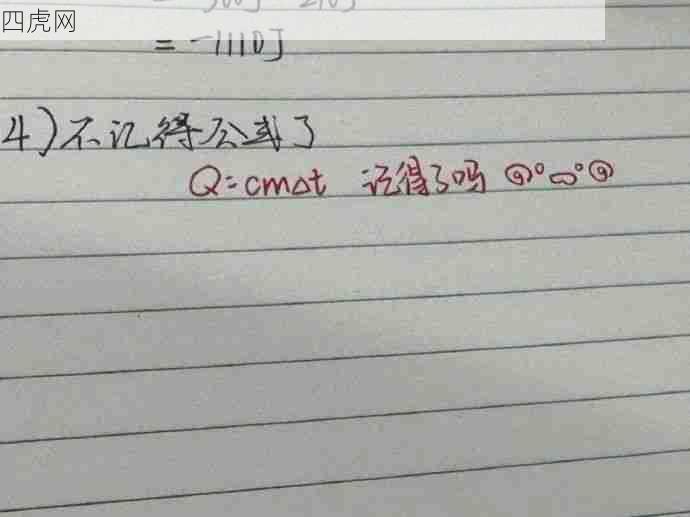 四虎网
= -1110J
4)不记得公式了
Q=cmΔt 记得了吗